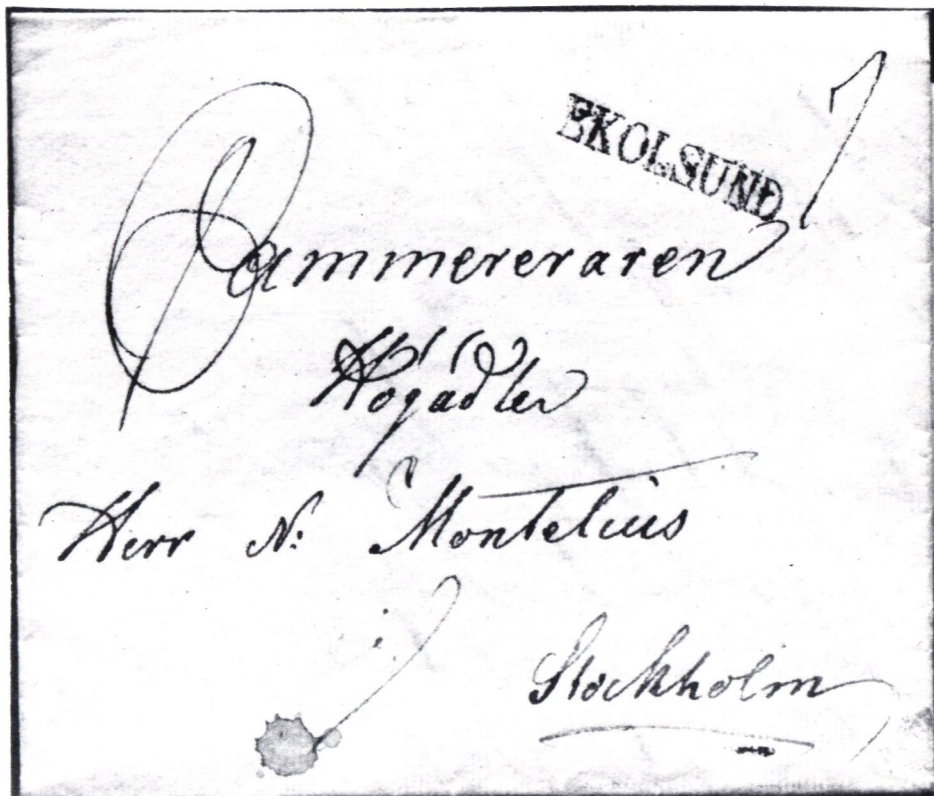 EKOLSUND
Cammereraren
Högädler
Herr N: Montelius
Stockholm